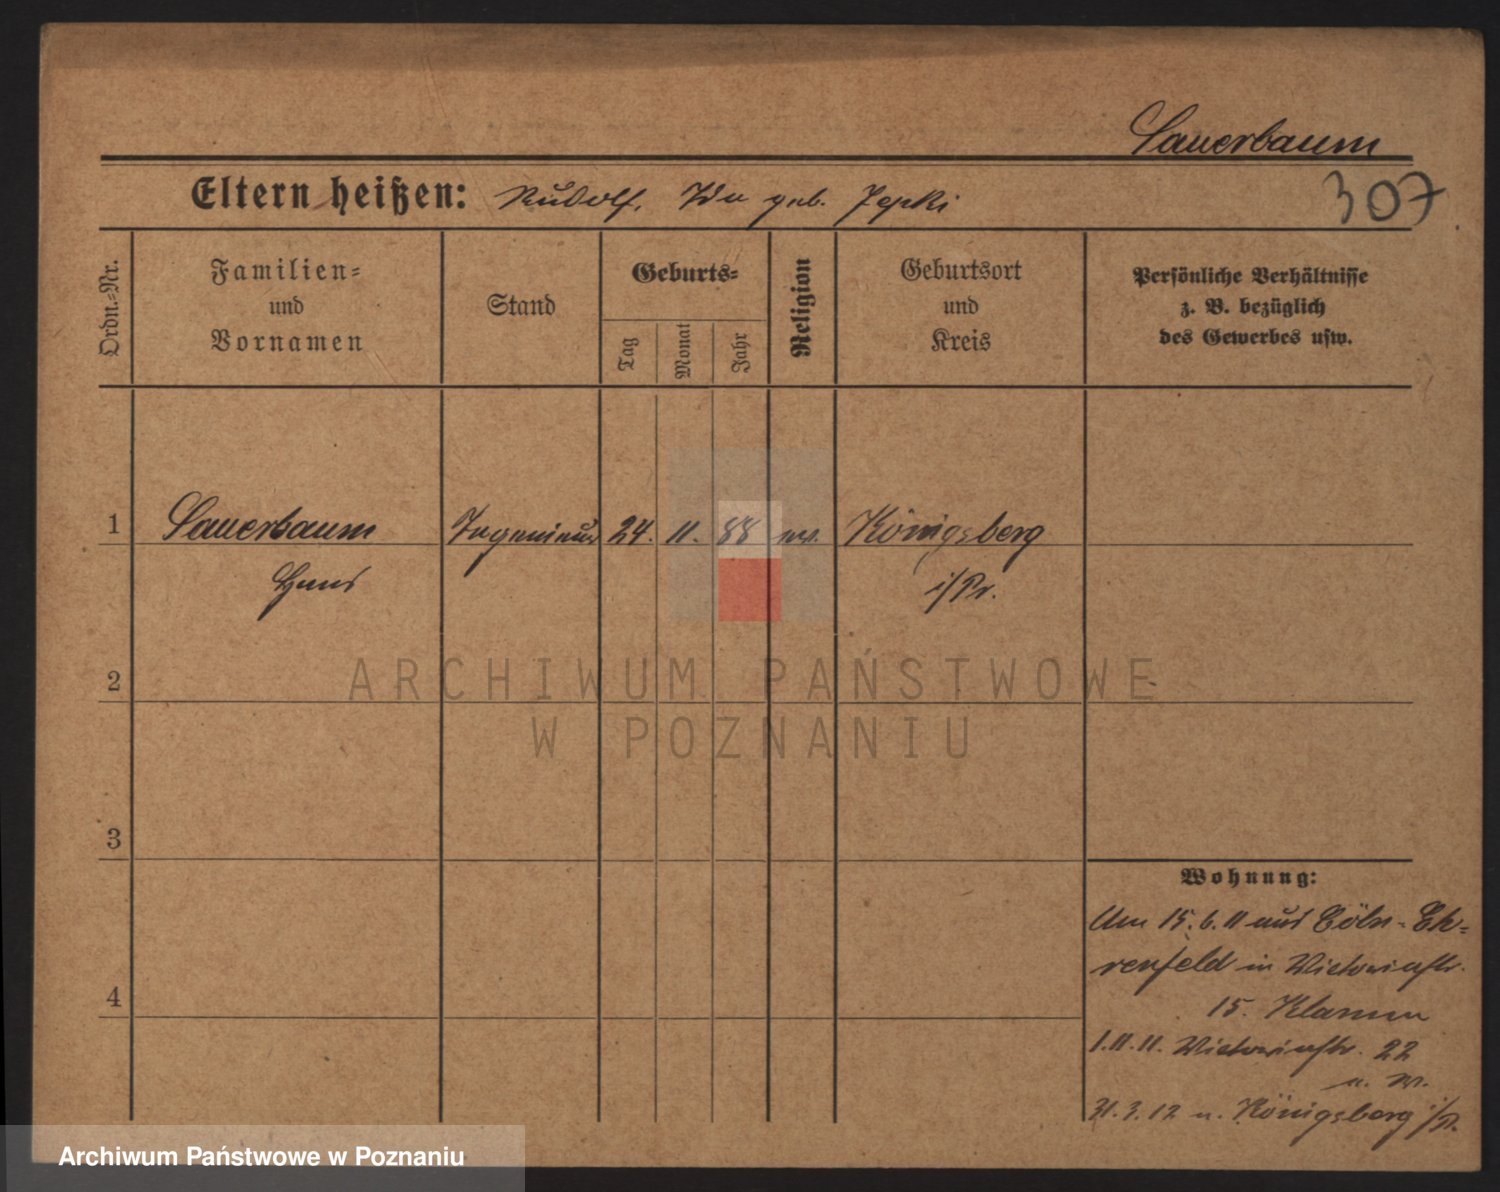 Sauerbaum
Eltern heißen: Rudolf, Ida geb.
307
Ordn.-Nr.
Familien-
und
Vornamen
Stand
Geburts-
Tag
Monat
Jahr
Religion
Geburtsort
und
Kreis
Persönliche Verhältnisse
z. B. bezüglich
des Gewerbes usw.
1
Sauerbaum
Ingenieur
24.
11.
88
ev.
Königsberg
Hans
i/Pr.
2
ARCHIWUM PAŃSTWOWE
W POZNANIU
3
4
Wohnung:
Am 15.6.11 aus Cöln-Eh-
renfeld in Victoriastr.
15. Klamm
1.11.11. Victoriastr. 22
31.3.12 n. Königsberg i/P.
Archiwum Państwowe w Poznaniu